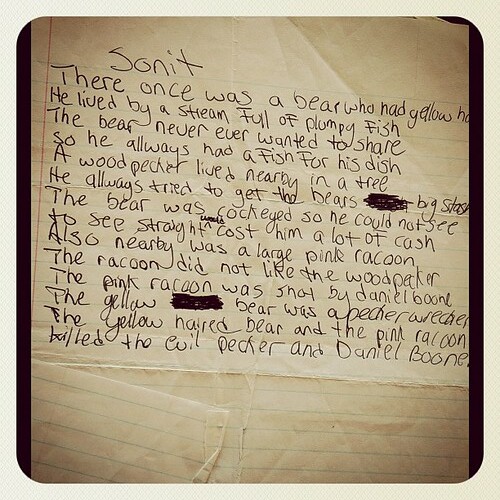 Sonit
There once was a bear who had yellow ha
He lived by a stream full of plumpy fish
The bear never ever wanted to share
so he allways had a fish for his dish
A woodpecker lived nearby in a tree
He allways tried to get the bears big stash
The bear was cockeyed so he could not see
to see straight would cost him a lot of cash
Also nearby was a large pink racoon
The racoon did not like the woodpecker
The pink racoon was shot by daniel boone
The yellow bear was a pecker wrecker
The yellow haired bear and the pink racoon
killed the evil pecker and Daniel Boone